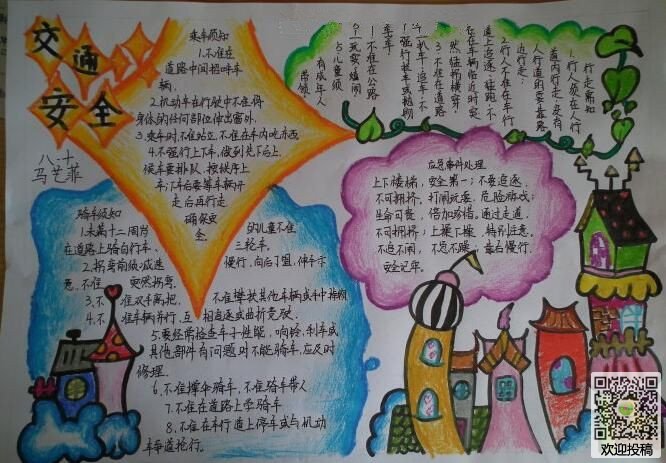 交通
安全
八.十
马艺菲
乘车须知
1.不准在
道路中间招呼车
辆.
2.机动车在行驶中不准将
身体的任何部位伸出窗外.
3.乘车时,不准站立,不准在车内吃东西
4.不强行上下车,做到先下后上,
候车要排队,按秩序上
车;下车后要等车辆开
走后再行走,
确保安
全。
行走需知
1.行人须在人行
道内行走,没有
人行道的要靠路
边行走;
2.行人不准在车行
道上追逐、猛跑,不
准在车辆临近时突
然猛拐横穿;
3.不准在道路
上扒车、追车、不
强行拦车或抛物
击车
1.不准在公路
上玩耍、嬉闹;
5.儿童须
有成年人
带领;
应急事件处理
上下楼梯,安全第一;不要追逐,
不可拥挤,打闹玩耍,危险游戏;
生命可贵,倍加珍惜,通过走道,
不可拥挤;上操下操,特别注意,
不追不闹,不急不躁;靠右慢行,
安全记牢。
骑车须知
1.未满十二周岁
的儿童不准
在道路上骑自行车、
三轮车。
2.拐弯前须减速
慢行,向后了望,伸手示
意,不准
突然拐弯。
3.不准双手离把,
不准攀扶其他车辆或手中持物
4.不准车辆并行,互相追逐或曲折竞驶.
5.要经常检查车子性能,响铃、刹车或
其他部件有问题时不能骑车,应及时
修理.
6.不准撑伞骑车,不准骑车带人
7.不准在道路上学骑车
8.不准在车行道上停车或与机动
车争道抢行。
欢迎投稿